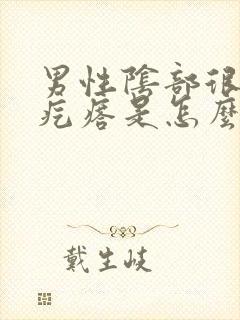 男性陰部很
疙瘩是怎麼
戴生岐